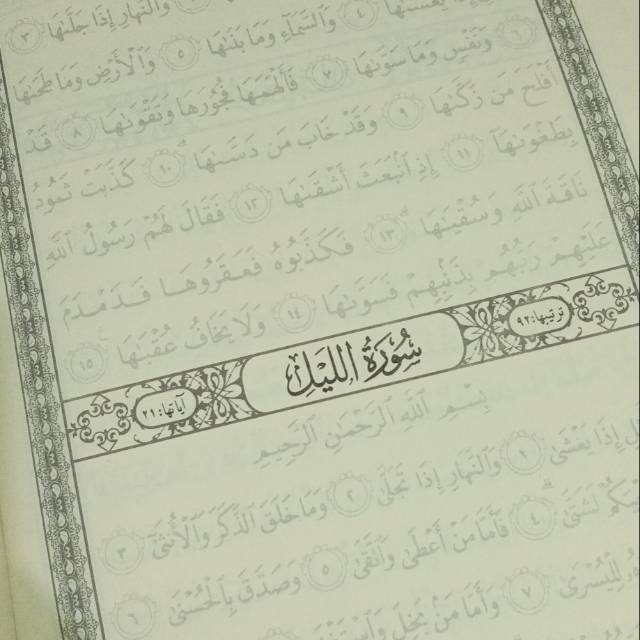 وَالنَّهَارِ إِذَا جَلَّىٰهَا ٣
يَغْشَىٰهَا ٤ وَالسَّمَآءِ وَمَا بَنَىٰهَا ٥ وَالْأَرْضِ وَمَا طَحَىٰهَا
٦ وَنَفْسٍ وَمَا سَوَّىٰهَا ٧ فَأَلْهَمَهَا فُجُورَهَا وَتَقْوَىٰهَا ٨ قَدْ
أَفْلَحَ مَن زَكَّىٰهَا ٩ وَقَدْ خَابَ مَن دَسَّىٰهَا ١٠ كَذَّبَتْ ثَمُودُ
بِطَغْوَىٰهَآ ١١ إِذِ انۢبَعَثَ أَشْقَىٰهَا ١٢ فَقَالَ لَهُمْ رَسُولُ اللَّهِ
نَاقَةَ اللَّهِ وَسُقْيَٰهَا ١٣ فَكَذَّبُوهُ فَعَقَرُوهَا فَدَمْدَمَ
عَلَيْهِمْ رَبُّهُم بِذَنۢبِهِمْ فَسَوَّىٰهَا ١٤ وَلَا يَخَافُ عُقْبَٰهَا ١٥
ترتيبها:٩٢ سُورَةُ اللَّيْلِ آياتها:٢١
بِسْمِ اللَّهِ الرَّحْمَٰنِ الرَّحِيمِ
إِذَا يَغْشَىٰ ١ وَالنَّهَارِ إِذَا تَجَلَّىٰ ٢ وَمَا خَلَقَ الذَّكَرَ وَالْأُنثَىٰٓ ٣
لَشَتَّىٰ ٤ فَأَمَّا مَنْ أَعْطَىٰ وَاتَّقَىٰ ٥ وَصَدَّقَ بِالْحُسْنَىٰ ٦
لِلْيُسْرَىٰ ٧ وَأَمَّا مَنۢ بَخِلَ وَاسْتَغْنَىٰ